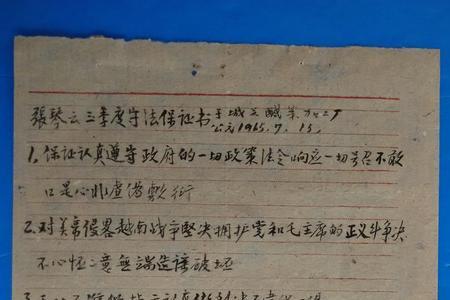 張琴云三季度守法保证书于城关醎菜加工厂
公元1965.7.15.
1.保证认真遵守政府的一切政策法令响应一切号召不敢
口是心非虚偽敷衍
2.对美帝侵畧越南战争堅决拥护党和毛主席的正义斗争决
不心怀二意無端造谣破坏